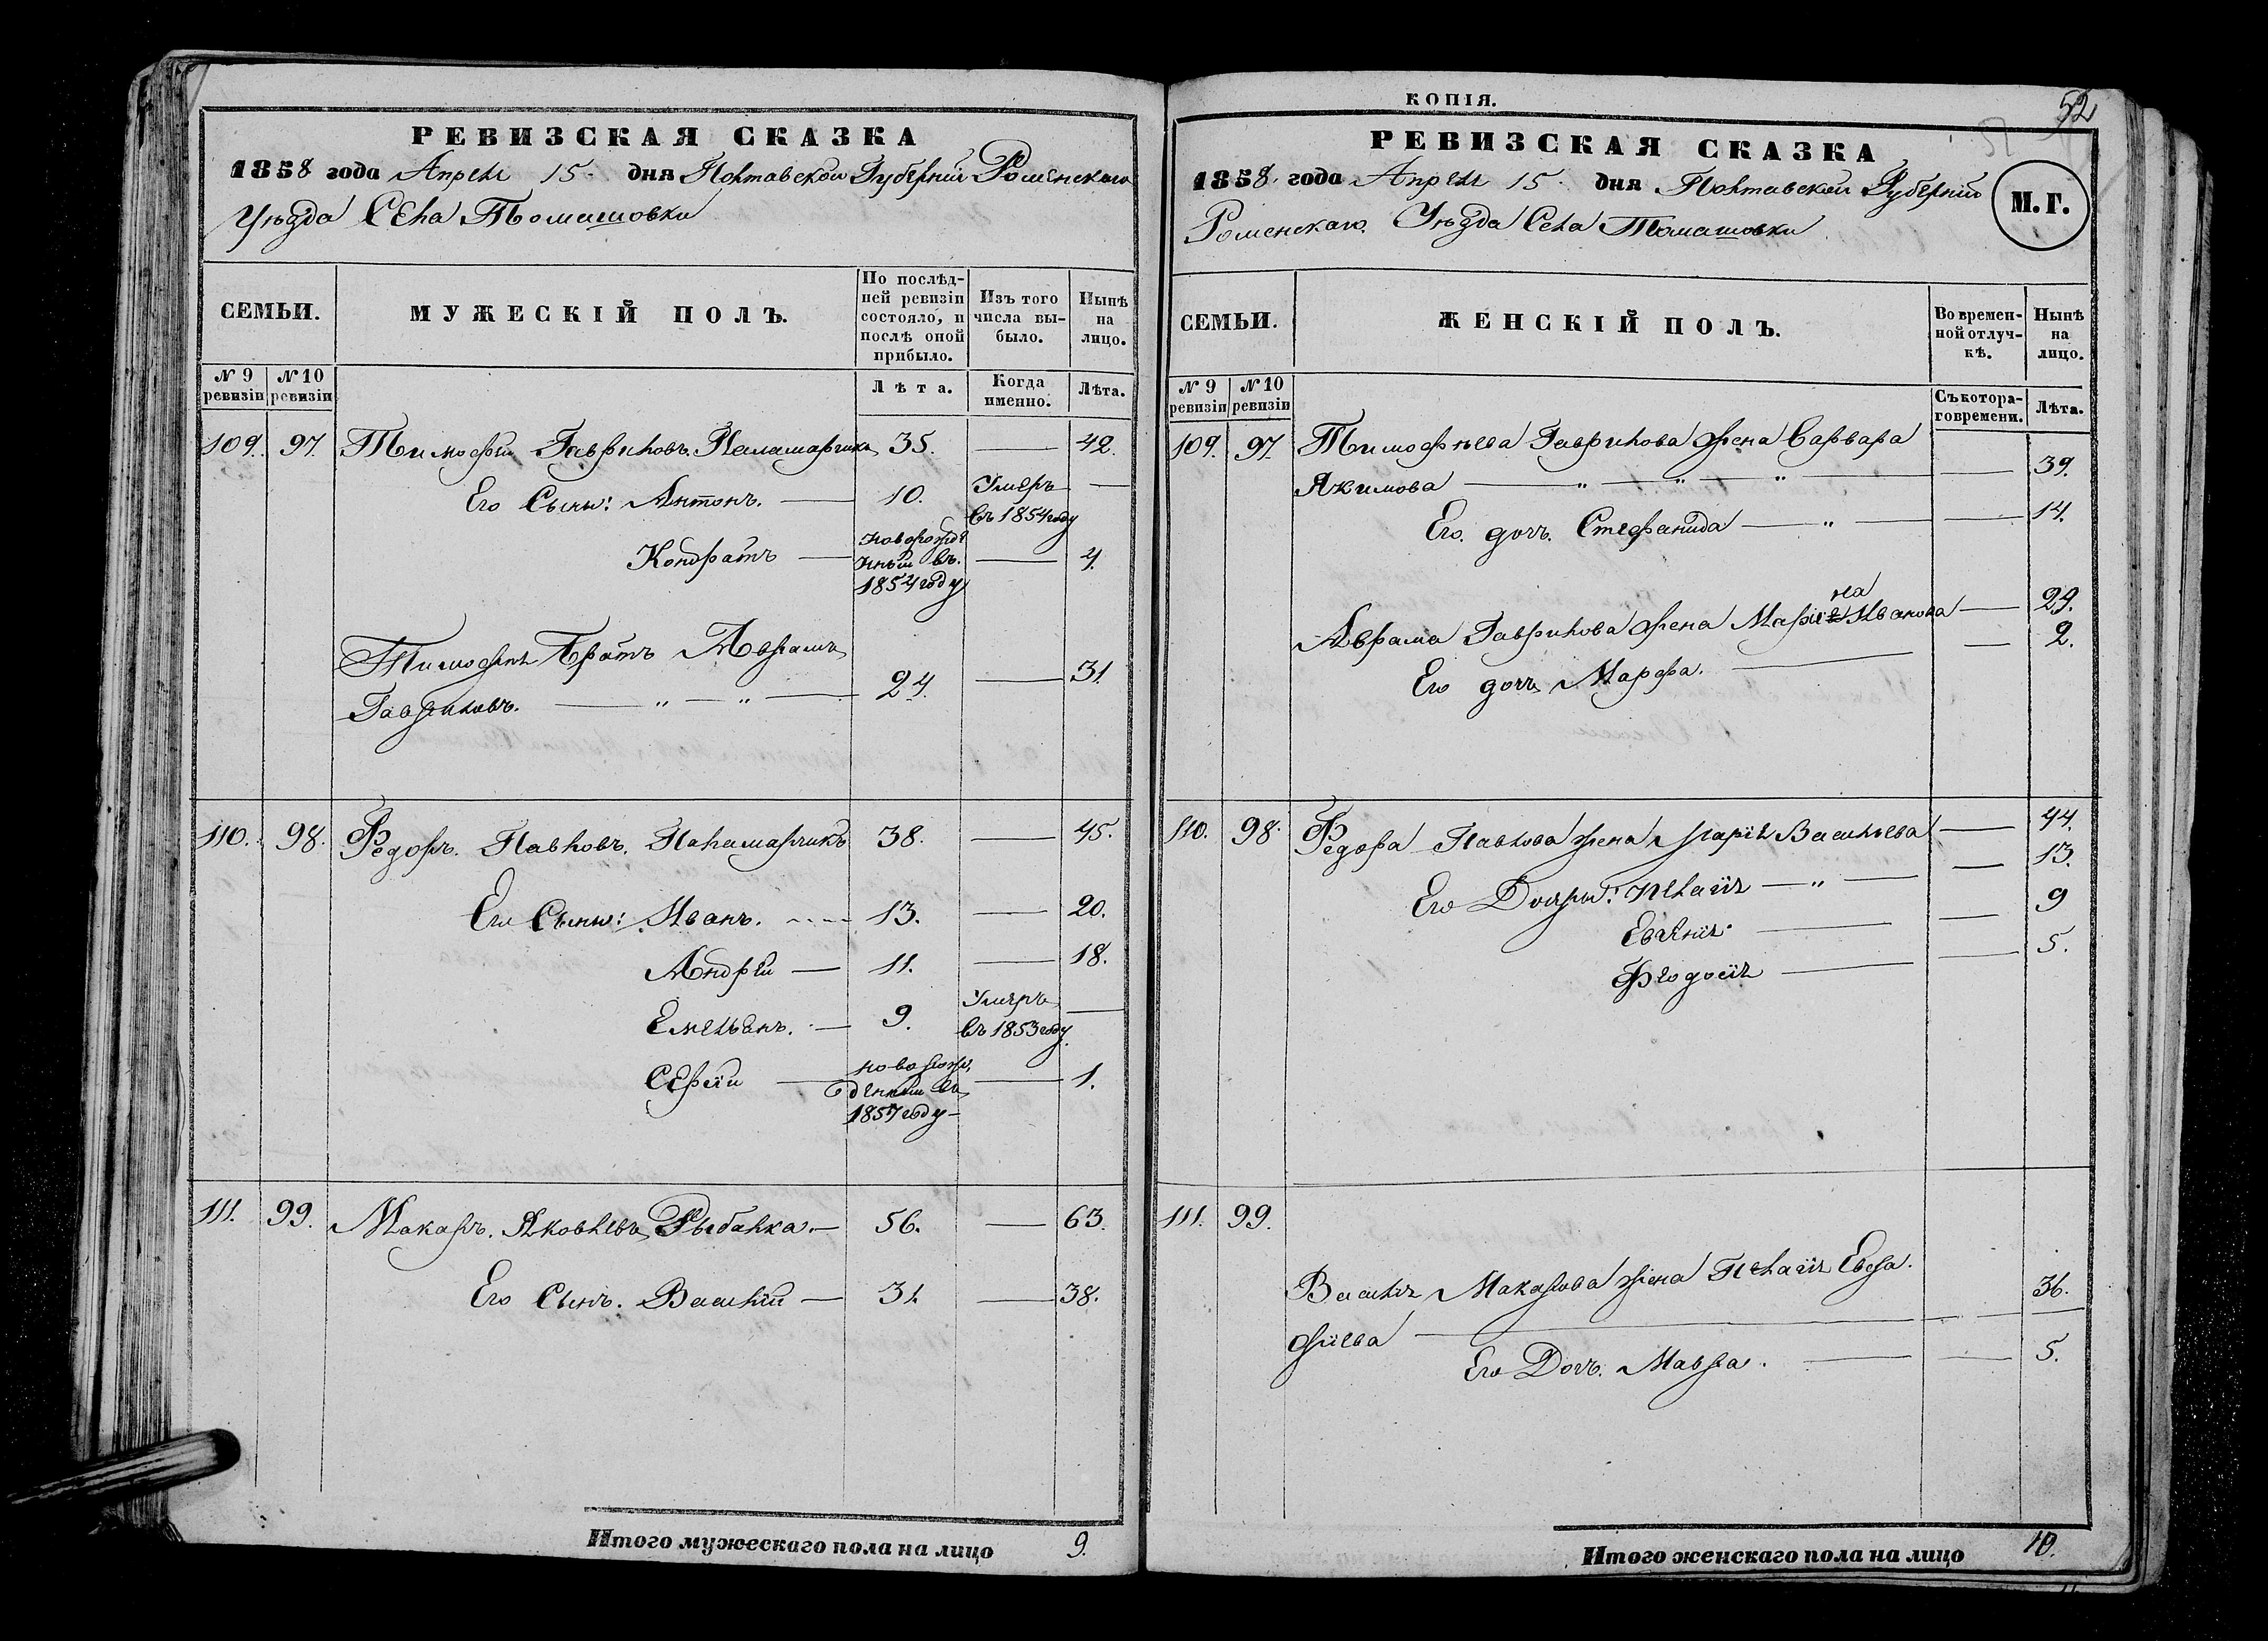 РЕВИЗСКАЯ СКАЗКА
1858 года Апреля 15. дня Полтавской Губернии Роменскаго
Уѣзда Села Томашовки
СЕМЬИ.
МУЖЕСКІЙ ПОЛЪ.
По послѣд-
ней ревизіи
состояло, и
послѣ оной
прибыло.
Изъ того
числа вы-
было.
Нынѣ
на
лицо.
№ 9
ревизіи
№ 10
ревизіи
Лѣта.
Когда
именно.
Лѣта.
109. 97. Тимофей Гавриловъ Паламарчикъ 35. — 42.
Его Сыны: Антонъ. — 10. Умеръ —
въ 1854 году
Кондратъ — новорожде
нный въ
1854 году — 4.
Тимофея Братъ Аврамъ
Гавриловъ. — „ — „ — 24. — 31.
110. 98. Федоръ. Павловъ. Паламарчикъ 38. — 45.
Его Сыны: Иванъ. — 13. — 20.
Андрей — 11. — 18.
Емельянъ. — 9. Умеръ
въ 1853 году. —
Сергій — новорож
денный въ
1857 году — — 1.
111. 99. Макаръ. Яковлевъ Рыбалка. — 56. — 63.
Его Сынъ. Василій — 31. — 38.
Итого мужескаго пола на лицо 9.
КОПІЯ.
52
51
РЕВИЗСКАЯ СКАЗКА
1858. года Апреля 15. дня Полтавской Губерніи
Роменскаго. Уѣзда Села Томашовки
М.Г.
СЕМЬИ.
ЖЕНСКІЙ ПОЛЪ.
Во времен-
ной отлуч-
кѣ.
Нынѣ
на
лицо.
№ 9
ревизіи
№ 10
ревизіи
Съ котора-
го времени.
Лѣта.
109. 97. Тимофѣева Гаврилова жена Варвара
Якимова — „ — „ — „ — — 39.
Его. дочь. Стефанида — „ — — 14.
на
Аврама Гаврилова жена Марія Иванова — 29.
Его дочь Марфа. — — 2.
110. 98. Федора Павлова жена Марія Васильева — 44.
Его Дочери: Пелагія — „ — — 13.
Евгенія — — 9
Феодосія — — 5.
111. 99.
Василія Макарова жена Пелагія Евса.
фіева — — 36.
Его Дочь. Мавра. — — 5.
Итого женскаго пола на лицо 10.